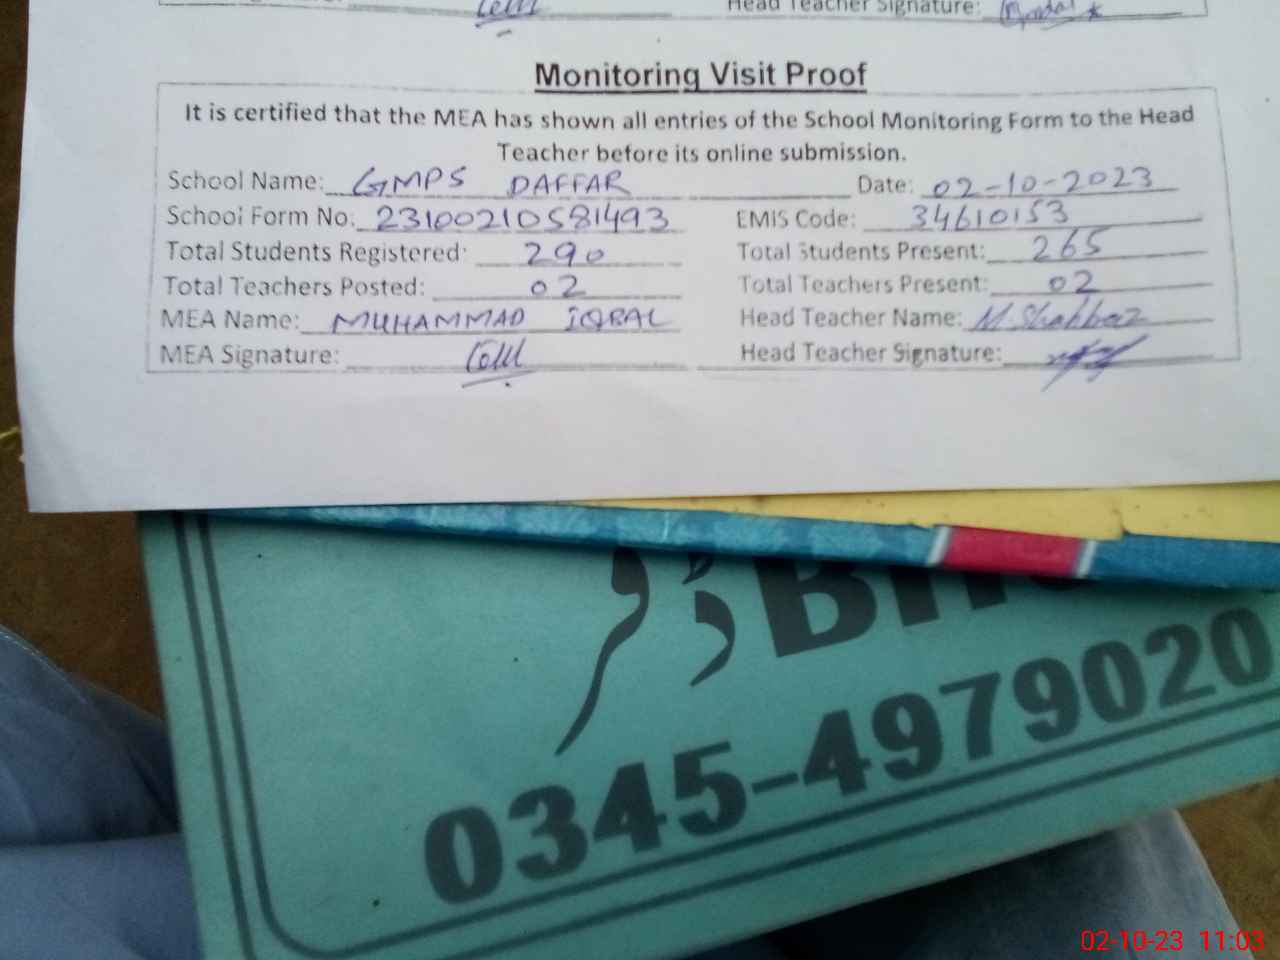 Head Teacher Signature:
Monitoring Visit Proof
It is certified that the MEA has shown all entries of the School Monitoring Form to the Head
Teacher before its online submission.
School Name: GMPS DAFFAR Date: 02-10-2023
School Form No: 23100210581493 EMIS Code: 34610153
Total Students Registered: 290 Total Students Present: 265
Total Teachers Posted: 02 Total Teachers Present: 02
MEA Name: MUHAMMAD IQBAL Head Teacher Name: M. Shahbaz
MEA Signature: Head Teacher Signature:
0345-4979020
02-10-23 11:03